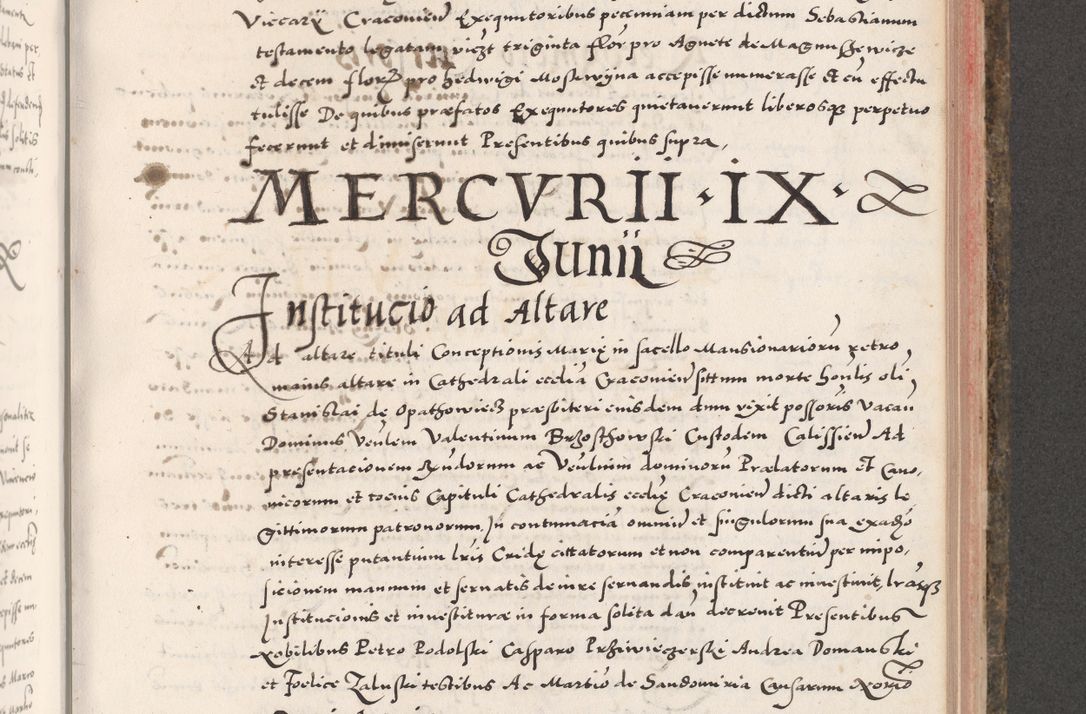 Viecarÿ Craconien Exequutoribus pecunniam per dictum Sebastianum
testamento legatam viezt triginta flor pro Agnete de Magnuszewicze
et decem flor pro hedwigi Mostwÿna accepisse numerasse et cu effectu
tulisse De quibus præfatos Exequutores quietauerunt liberosqz perpetuo
fecerunt et dimiserunt Presentibus quibus supra,
MERCVRII · IX ·
Junÿ
Institucio ad Altare
Ad altare tituli Conceptionis Marię in sacello Mansionarioru retro
maius altare in Cathedrali ecclia Craconien situm morte honlis oli
Stanislai de Opathowiecz præsbiteri eiusdem dum vixit possoris Vacan
Dominus Venlem Valentinum Brzosthowski Custodem Calissien Ad
presentacionem Rndorum ac Venlium dominoru Prælatorum et Cano,
nicorum et tocius Capituli Cathedralis ecclię Craconien dicti altaris le
gittimorum patronorum, In contumacia omniu et singulorum sua
interesse putantium lris Cridę cittatorum et non comparentiu per impo,
sicionem manuum et seruatis de iure seruandis instituit ac inuestiuit, lrasqz
Institucionis et inuestituræ in forma solita dan decreuit Presentibus
Nobilibus Petro Podolski Casparo Prziwieczerski Andrea Domanski
et Foelice Zaluski testibus Ac Martio de Sandomiria Causarum Notrio